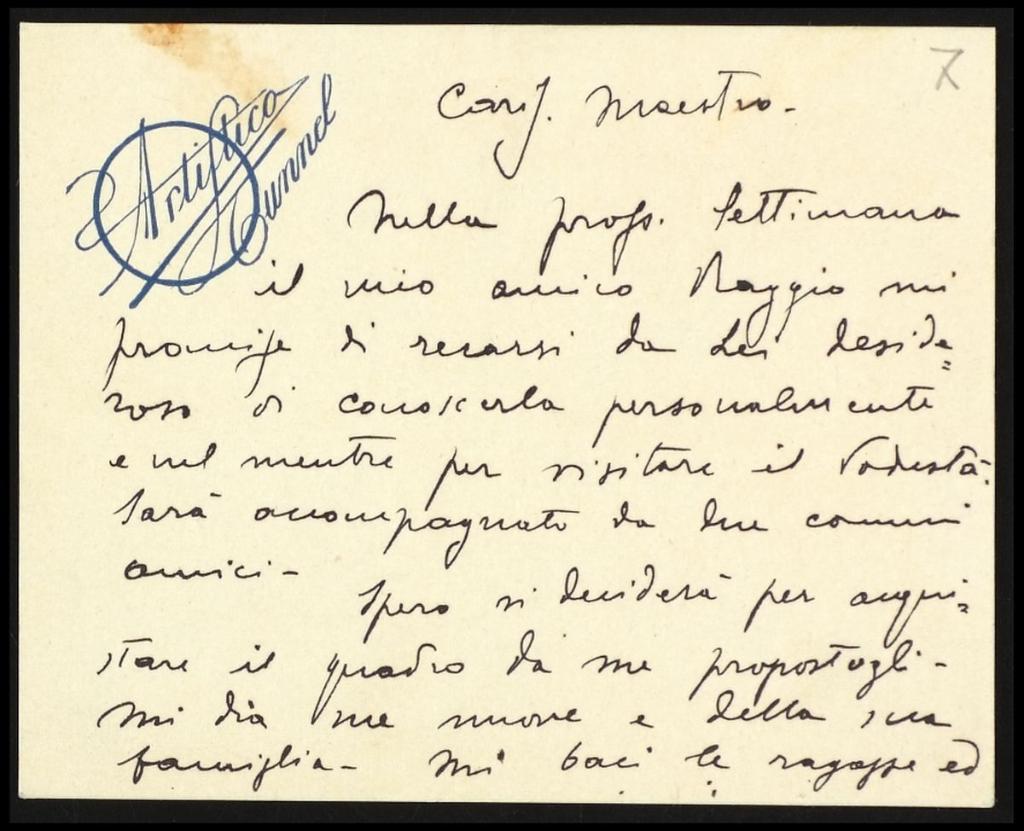 7
Artistico
Tunnel
Cariss. Maestro.
Nella pross. Settimana
il mio amico Raggio mi
promise di recarsi da Lei deside=
roso di conoscerla personalmente
e nel mentre per visitare il Podestà.
Sarà accompagnato da due comuni
amici -
Spero si deciderà per acqui=
stare il quadro da me propostogli -
Mi dia sue nuove e della sua
famiglia - Mi baci le ragazze ed